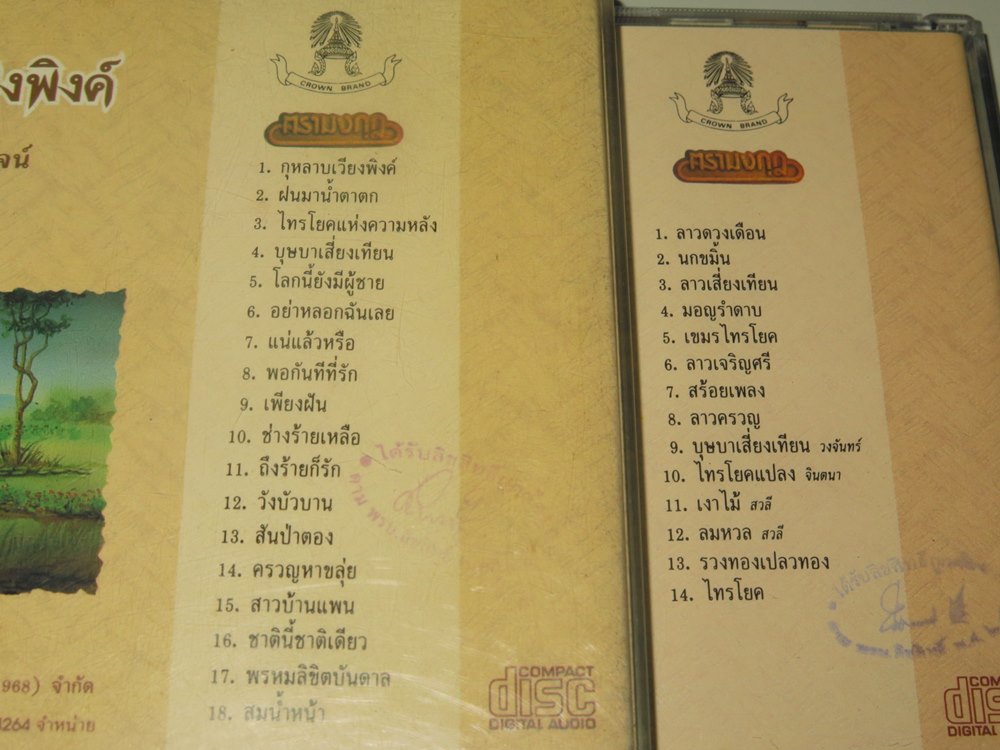 งพิงค์
จน์
CROWN BRAND
ตรามงกุฎ
1. กุหลาบเวียงพิงค์
2. ฝนมาน้ำตาตก
3. ไทรโยคแห่งความหลัง
4. บุษบาเสี่ยงเทียน
5. โลกนี้ยังมีผู้ชาย
6. อย่าหลอกฉันเลย
7. แน่แล้วหรือ
8. พอกันทีที่รัก
9. เพียงฝัน
10. ช่างร้ายเหลือ
11. ถึงร้ายก็รัก
12. วังบัวบาน
13. สันป่าตอง
14. ครวญหาขลุ่ย
15. สาวบ้านแพน
16. ชาตินี้ชาติเดียว
17. พรหมลิขิตบันดาล
18. สมน้ำหน้า
ได้รับลิขสิทธิ์
968) จำกัด
4264 จำหน่าย
COMPACT
disc
DIGITAL AUDIO
CROWN BRAND
ตรามงกุฎ
1. ลาวดวงเดือน
2. นกขมิ้น
3. ลาวเสี่ยงเทียน
4. มอญรำดาบ
5. เขมรไทรโยค
6. ลาวเจริญศรี
7. สร้อยเพลง
8. ลาวครวญ
9. บุษบาเสี่ยงเทียน วงจันทร์
10. ไทรโยคแปลง จินตนา
11. เงาไม้ สวลี
12. ลมหวล สวลี
13. รวงทองเปลวทอง
14. ไทรโยค
COM
dis
DIGITAL